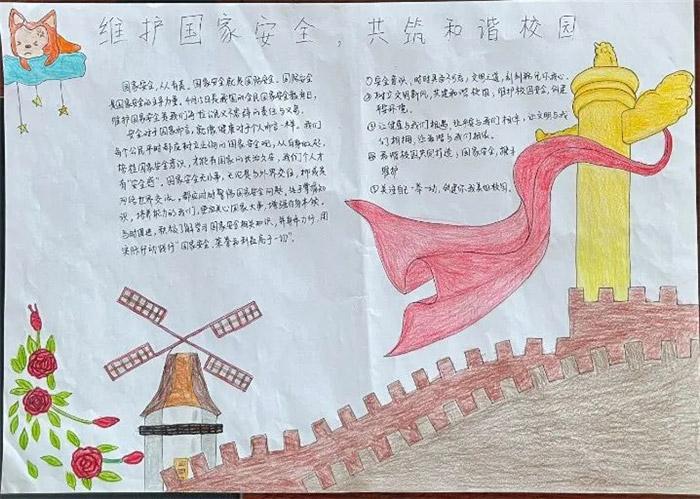 维护国家安全，共筑和谐校园
国家安全，从有我。国家安全就是国防安全。国防安全
是国家安全的主导力量。4月15日是我国的全民国家安全教育日，
维护国家安全是我们每位公民义不容辞的责任与义务。
安全对于国家而言，就像健康对于个人而言一样。我们
每个公民平时都应树立正确的国家安全观，从自身做起，
培植国家安全意识，才能有国家的长治久安，我们个人才
有"安全感"。国家安全无小事，无论是与外界交往，抑或是
网络世界交流，都应时时警惕国家安全问题，
识，培养能力的我们，更应关心国家大事，增强自身本领，
与时俱进，积极了解学习国家安全相关知识，并身体力行，用
实际行动践行"国家安全，荣誉和利益高于一切"。
①安全意识，时时具备不忘，文明之道，刻刻
②树立文明新风，共建和谐校园，维护校园安全，创建
育环境。
③让健康与我们相遇，让平安与我们相伴，让文明与我
们相拥，让和谐与我们相依。
④和谐校园共同打造；国家安全，携手
维护
⑤关注自己一举一动，创建你我美四校园。